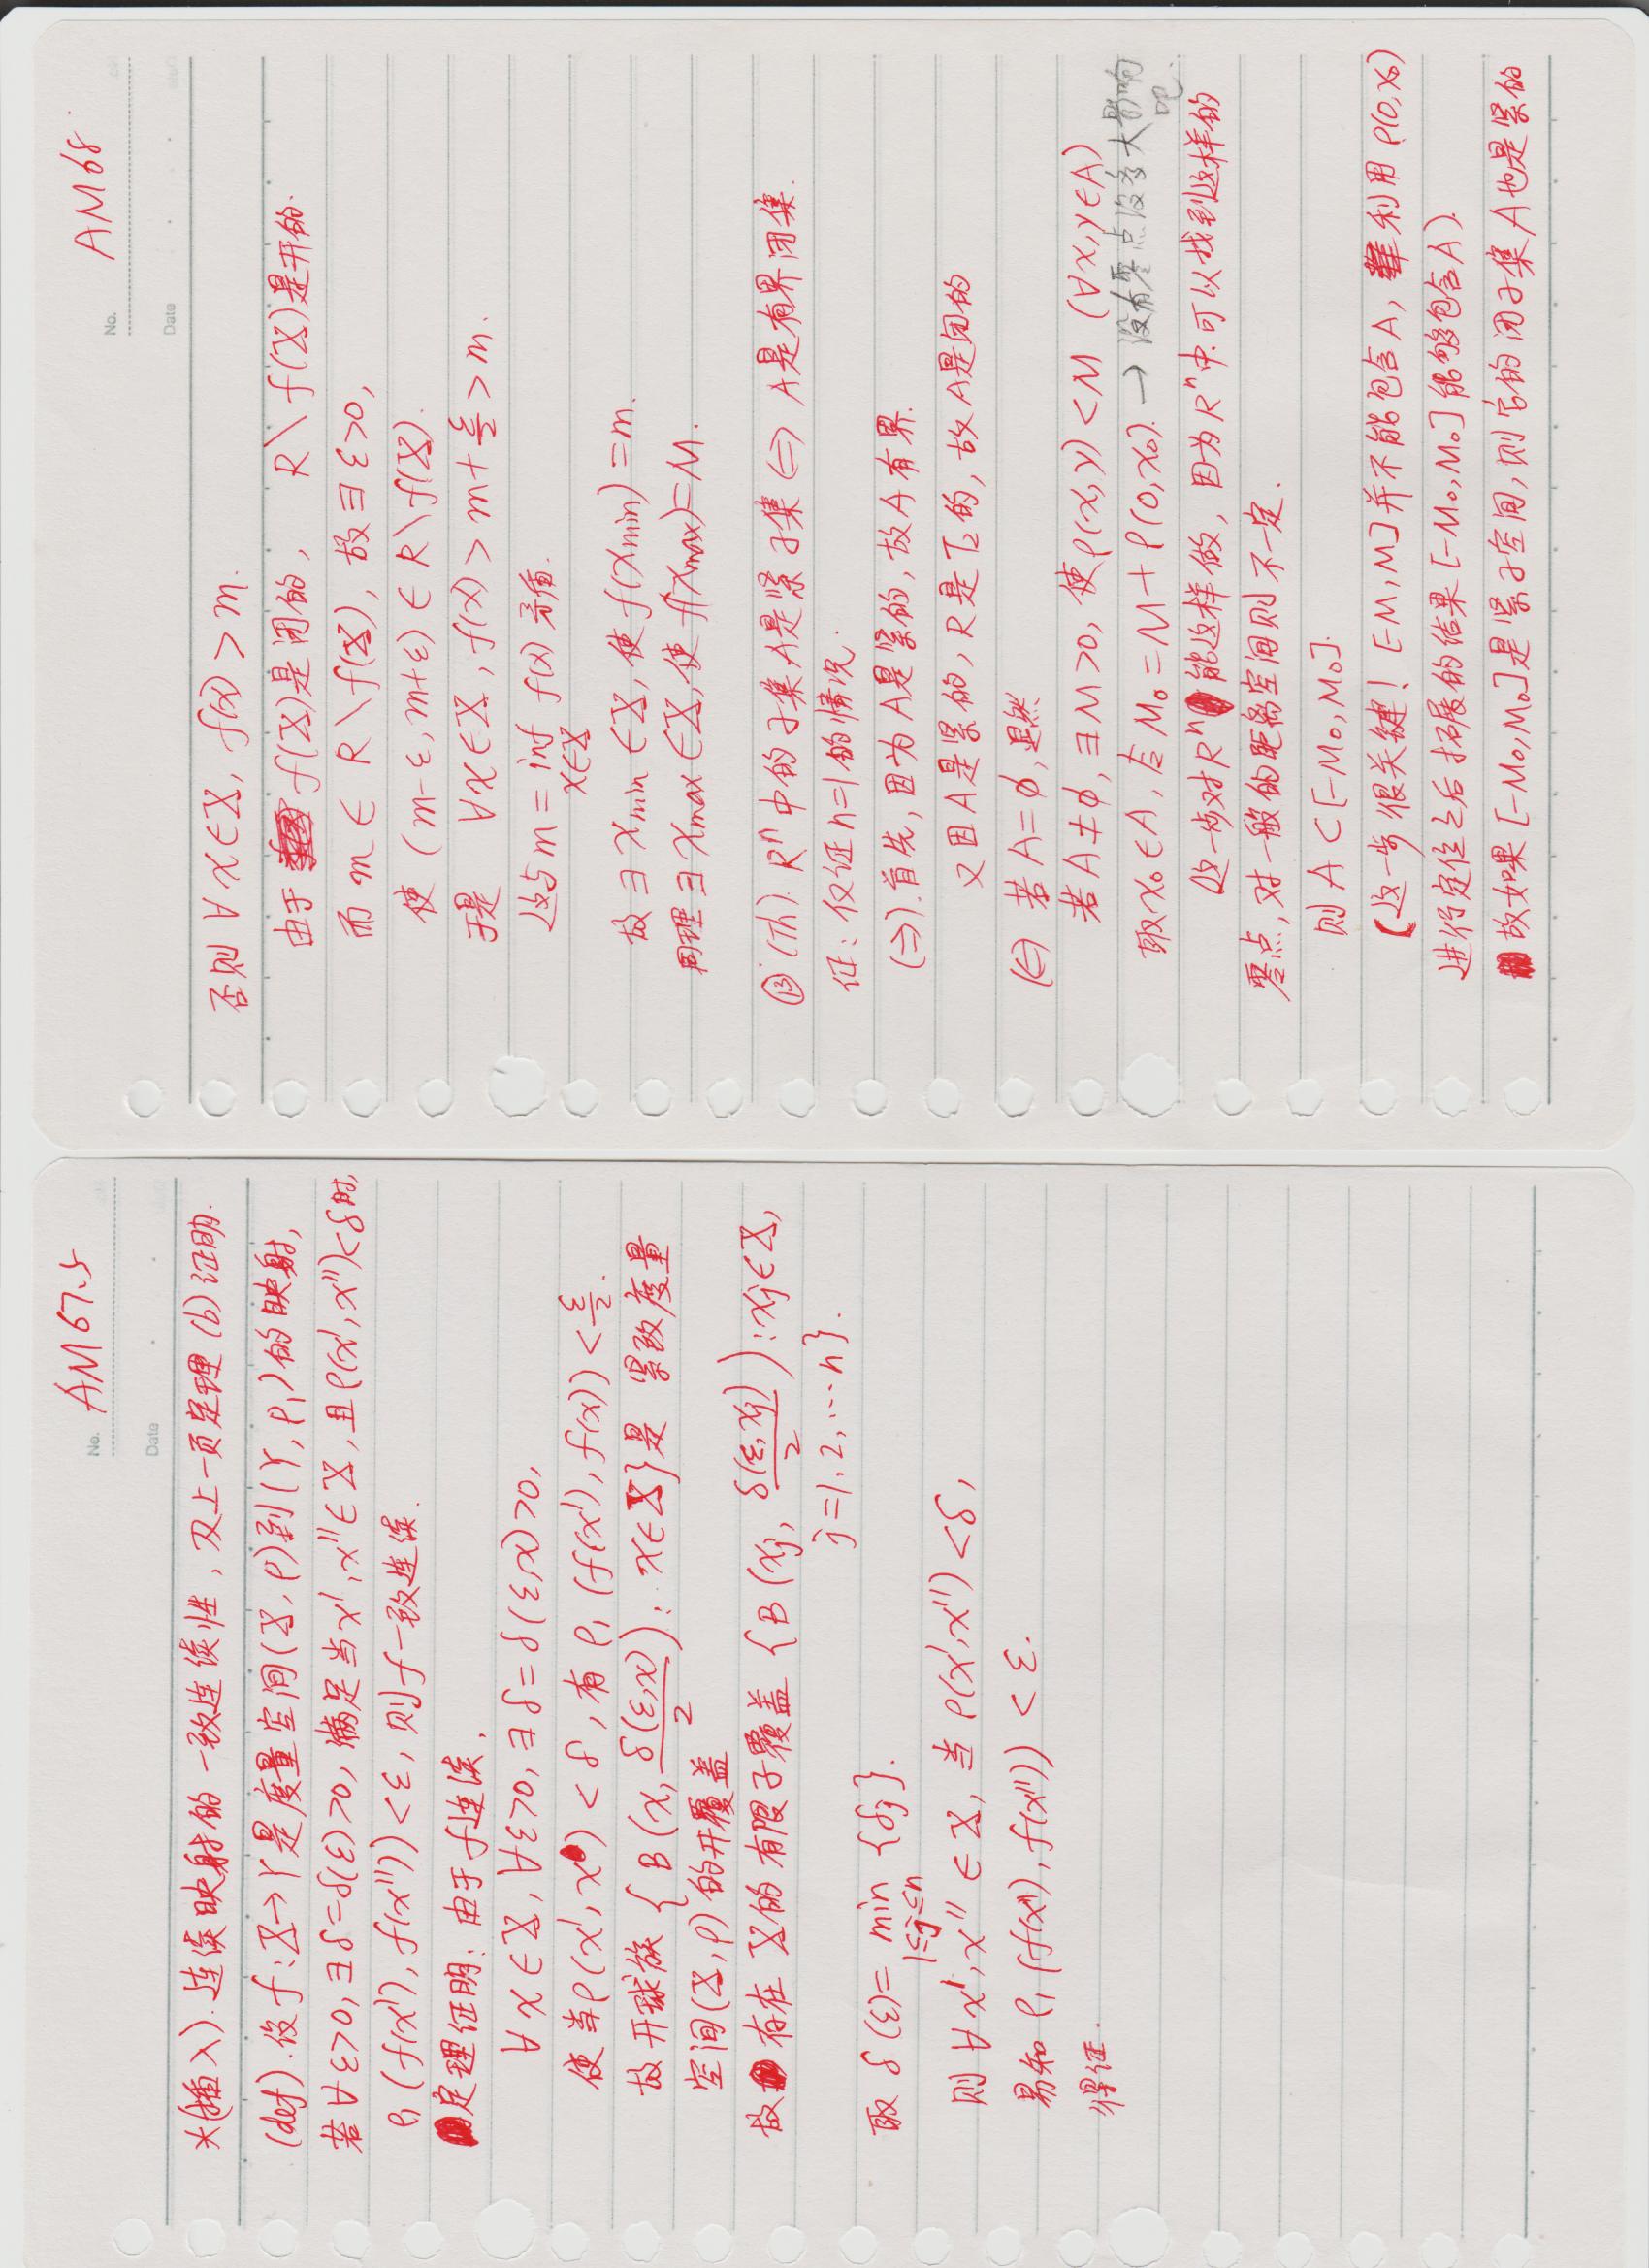 No. AM67.5
Date
*(插入). 连续映射的一致连续性, 及上一页定理(b)证明.
(def). 设 f: X→Y 是度量空间(X, ρ)到(Y, ρ₁)的映射,
若∀ε>0, ∃δ=δ(ε)>0, 满足当x′, x″∈X, 且ρ(x′, x″)<δ时,
ρ₁(f(x′), f(x″))<ε, 则f一致连续.
定理证明: 由于f连续,
∀x∈X, ∀ε>0, ∃δ=δ(ε,x)>0,
使当ρ(x′, x)<δ, 有ρ₁(f(x′), f(x))<ε/2.
故开球族{B(x, δ(ε,x)/2): x∈X}是 紧致度量
空间(X, ρ)的开覆盖
故存在X的有限子覆盖{B(xj, δ(ε,xj)/2): xj∈X,
j=1, 2, …n}.
取 δ(ε)= min {δj}.
1≤j≤n
则∀x′, x″∈X, 当ρ(x′, x″)<δ,
易知 ρ₁(f(x′), f(x″))<ε.
得证.
No. AM68
Date
否则∀x∈X, f(x)>m.
由于 f(X)是闭的, R\f(X)是开的.
而 m∈R\f(X), 故∃ε>0,
使 (m-ε, m+ε)∈R\f(X).
于是 ∀x∈X, f(x)>m+ε/2>m.
这与m = inf f(x) 矛盾.
x∈X
故∃xmin∈X, 使f(xmin)=m.
同理∃xmax∈X, 使f(xmax)=M.
⑬ (Th). Rⁿ中的子集A是紧子集⇔A是有界闭集.
证: 仅证n=1的情况.
(⇒). 首先, 因为A是紧的, 故A有界.
又因A是紧的, R是T₂的, 故A是闭的
(⇐) 若A=∅, 显然
若A≠∅, ∃M>0, 使ρ(x, y)<M (∀x,y∈A)
取x₀∈A, 令M₀=M+ρ(0, x₀). → 没有零点没多大影响
吧.
这一步对Rⁿ能这样做, 因为Rⁿ中可以找到这样的
零点, 对一般的距离空间则不一定.
则A⊂[-M₀, M₀].
(这一步很关键! [-M, M]并不能包含A, 利用ρ(0, x₀)
进行定位之后拓展的结果[-M₀, M₀]能够包含A).
故如果[-M₀, M₀]是紧子空间, 则它的闭子集A也是紧的